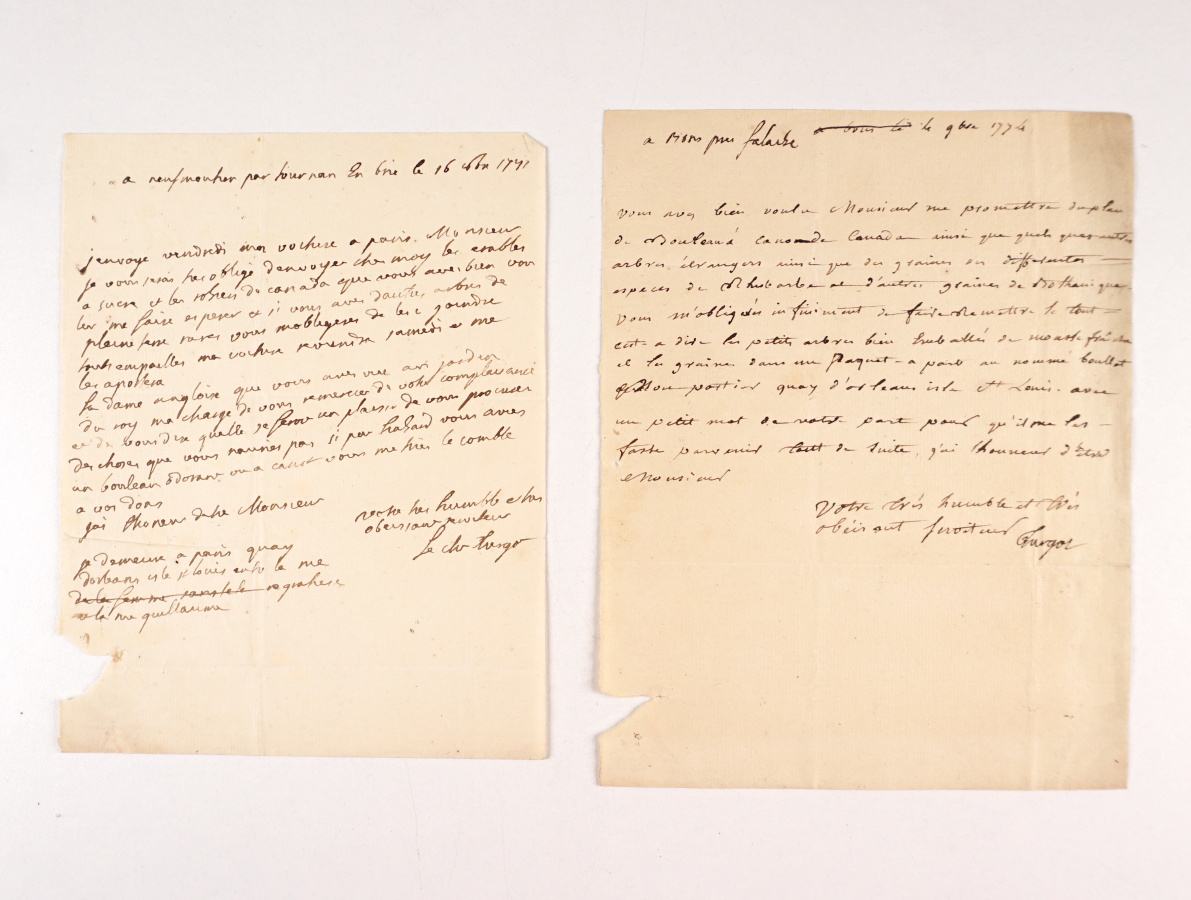 a neufmoutier par tournan En brie le 16
j'envoye vendredi ma vochere a paris. Monsieur
je vous serai tres obligé d'envoyer ches moy les erables
a sucre et les de canada que vous aves bien vou
lu me faire esperer et si vous aves dautres arbres de
pleine terre rares vous mobligeres de les y joindre
touts empailles ma vochere reviendra samedi et me
les aportera
la dame angloise que vous aves vue au jardin
du roy ma charge de vous remercier de votre complaisance
et de vous dire quelle se feroit un plaisir de vous procurer
des choses que vous nauries pas si par hasard vous avies
un bouleau odorant ou a canot vous metries le comble
a vos dons
jai lhoneur detre Monsieur
votre tres humble et tres
obeissant serviteur
Le chr turgot
je demeure a paris quay
dorleans isle st louis entre la rue
de la femme sans teste regratiere
et la rue guillaume
a Mons pres falaise a bous le le 9bre 1774
vous avés bien voulu Monsieur me promettre du plan
de Bouleau a canot de Canada ainsi que quelques autres
arbres étrangers ainsi que des graines des differentes
especes de Rhubarbe et d'autres graines de Bothanique.
vous m'obligerés infiniment de faire Remettre le tout
c'est a dire les petits arbres bien Emballés de mousse fraiche
et les graines dans un Paquet a part au nommé boullot
Mon portier quay d'orleans isle St Louis avec
un petit mot de votre part pour qu'il me les
fasse parvenir tout de suite, j'ai l'honneur d'Etre
Monsieur
Votre trés humble et trés
obéissant serviteur Turgot